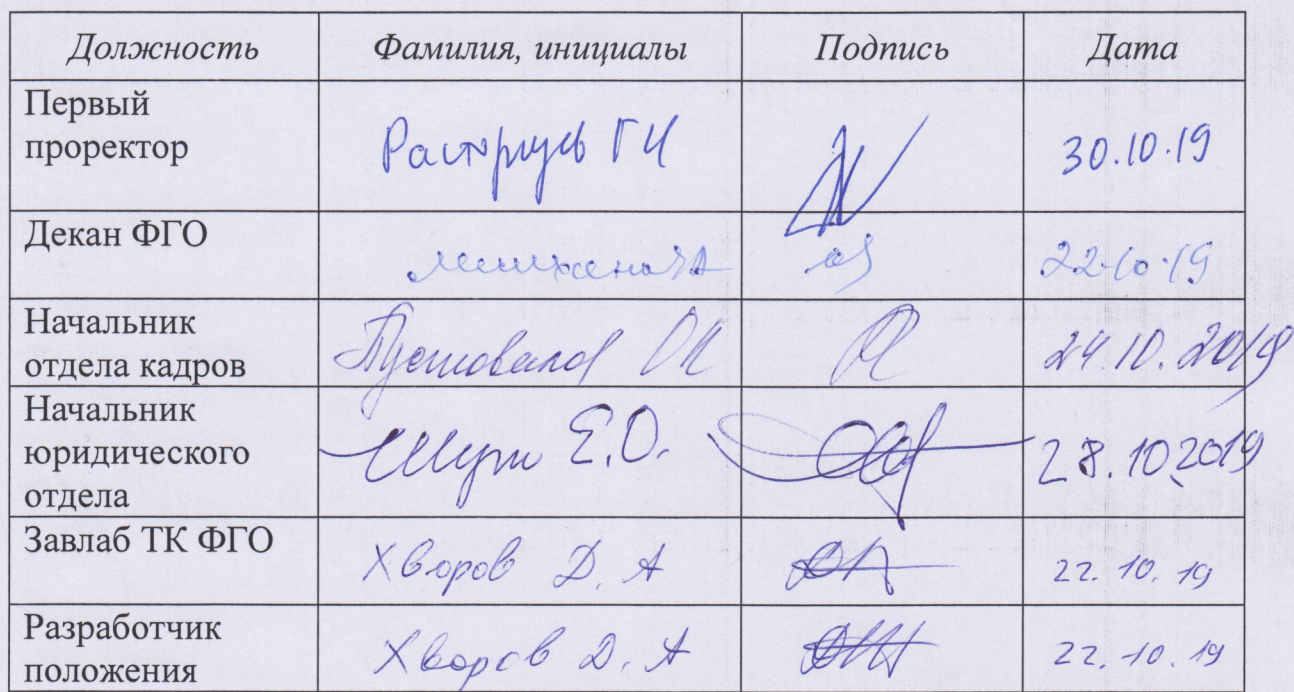 Должность Фамилия, инициалы Подпись Дата
Первый
проректор
30.10.19
Декан ФГО
22.10.19
Начальник
отдела кадров
Пустовалов 24.10.2019
Начальник
юридического
отдела
Е.О. 28.10.2019
Завлаб ТК ФГО
Хворов Д.А 22.10.19
Разработчик
положения
Хворов Д.А 22.10.19